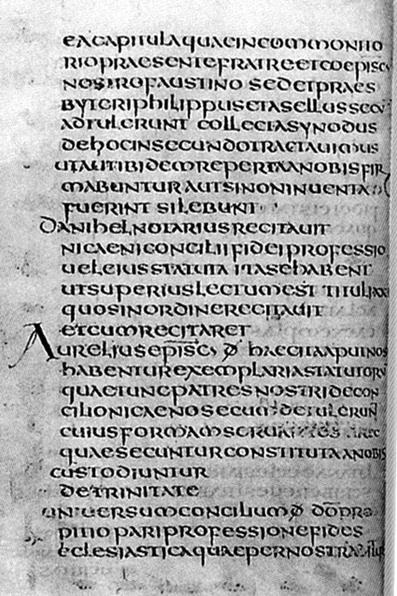 eacapitulaquaeincommonito
riopraesentefratreetcoepisc
nostrofaustino sedetpraes
byteriphilippusetasellussecu
adtulerunt collectasynodus
dehocinsecundotractauimus
utautibidemrepertaanobisfir
mabunturautsinoninuenta
fuerint silebunt
Danihelnotariusrecitauit
nicaeniconciliifideiprofessio
ueleiusstatuta itasehabent
utsuperiuslectumest
quosinordinerecitauit
etcumrecitaret
Aureliusepisc haecitaaputnos
habenturexemplariastatutoru
quaetuncpatresnostridecon
cilionicaenosecumdetulerun
cuiusformamseruantes
quaesecunturconstitutaanobis
custodiuntur
detrinitate
uniuersumconcilium
pitiopariprofessionefides
eclesiasticaquaepernostra